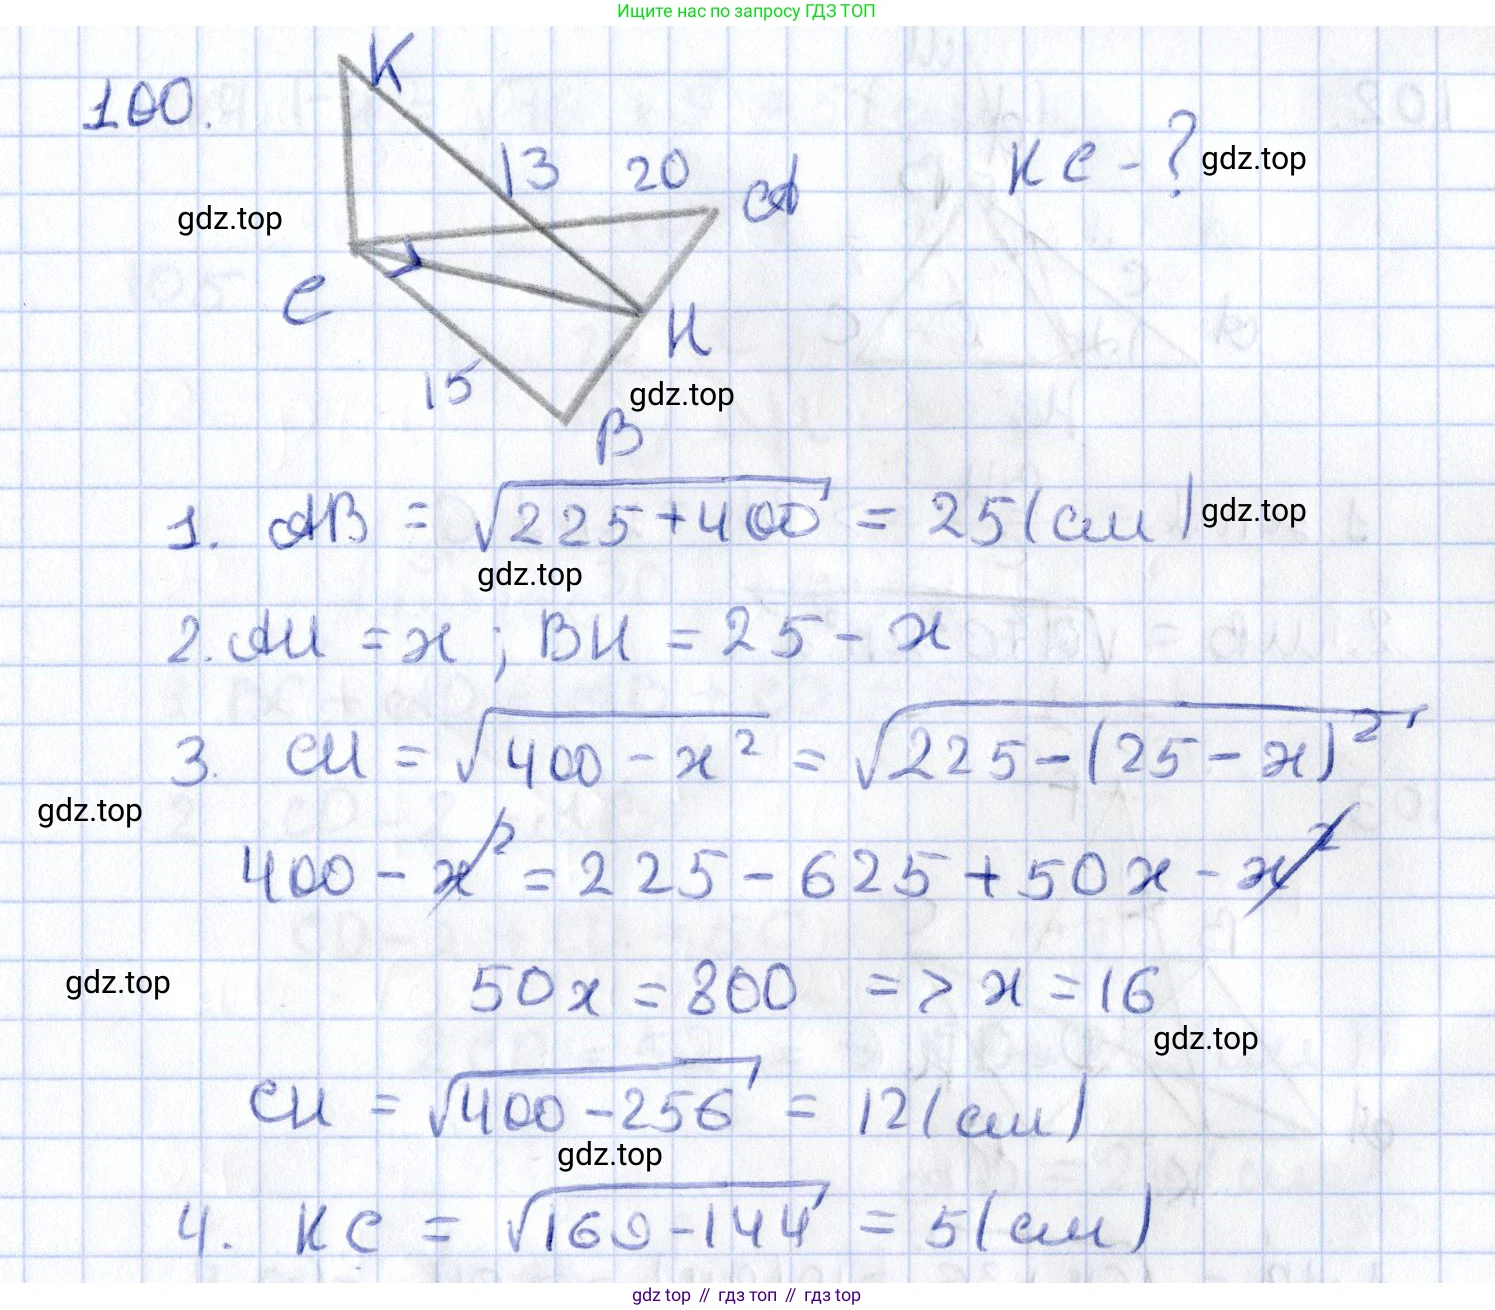 Ищите нас по запросу ГДЗ ТОП
100.
K
13
20
A
KC - ?
gdz.top
gdz.top
C
H
15
gdz.top
B
1. AB = √225+400 = 25(см)
gdz.top
gdz.top
2. AH = x ; BH = 25 - x
3. CH = √400 - x² = √225-(25-x)²
gdz.top
400 - x² = 225 - 625 + 50x - x²
50x = 800 => x = 16
gdz.top
gdz.top
CH = √400-256 = 12(см)
gdz.top
4. KC = √169-144 = 5(см)
gdz top // гдз топ // гдз top